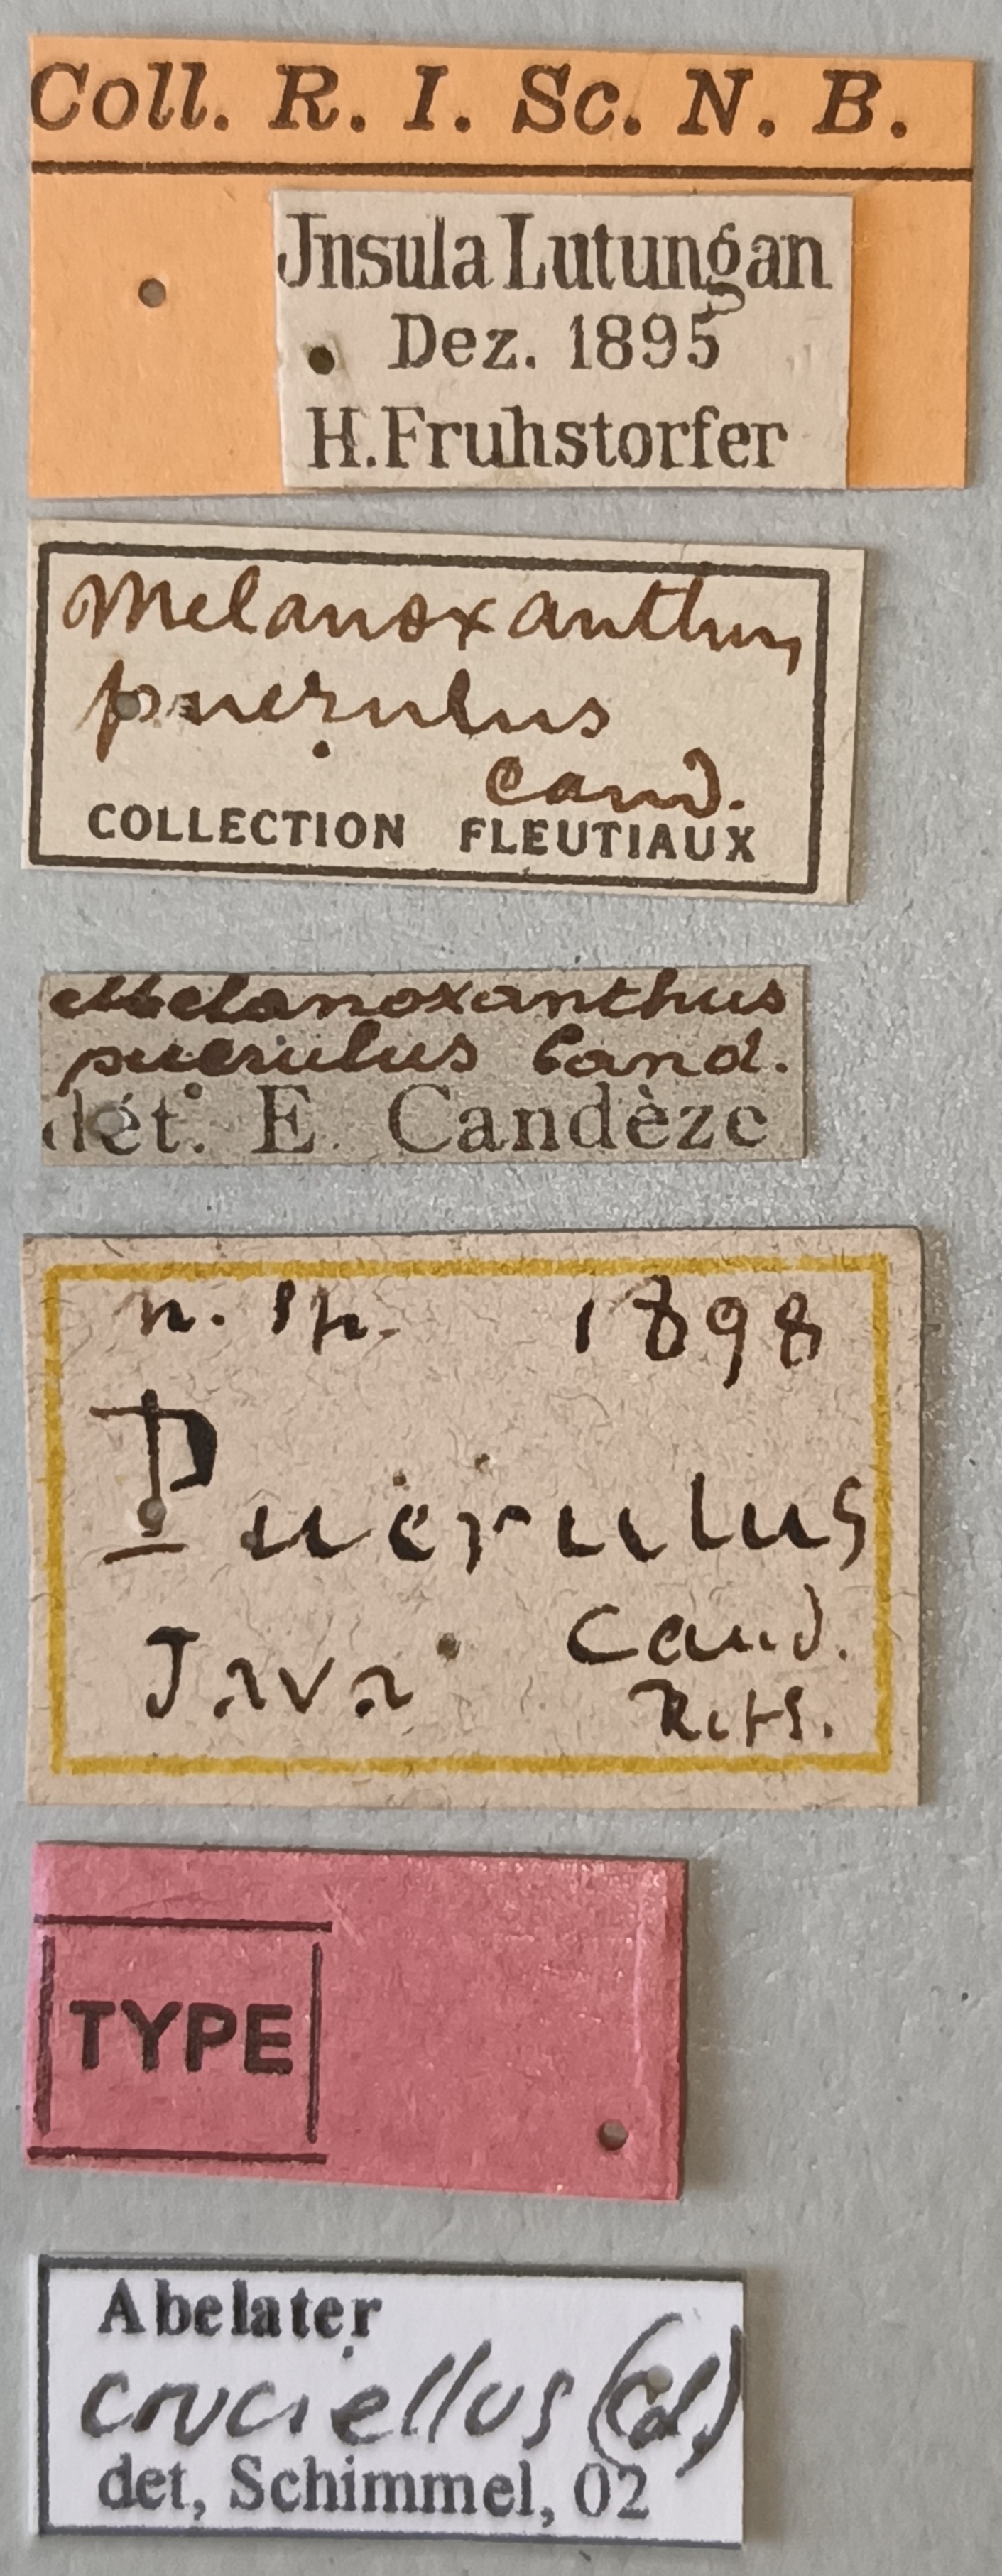 Coll. R. I. Sc. N. B.
Jnsula Lutungan
Dez. 1895
H. Fruhstorfer
Melanoxanthus
puerulus
Cand.
COLLECTION FLEUTIAUX
Melanoxanthus
puerulus Cand.
dét. E. Candèze
n. sp. 1898
Puerulus
Java Cand.
TYPE
Abelater
cruciellus (Cd)
det, Schimmel, 02